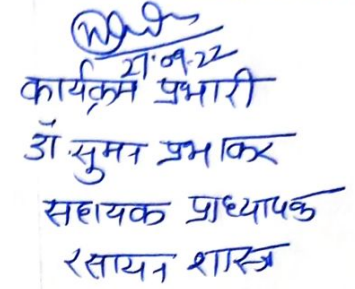 27.09.22
कार्यक्रम प्रभारी
डॉ सुमन प्रभाकर
सहायक प्राध्यापक
रसायन शास्त्र